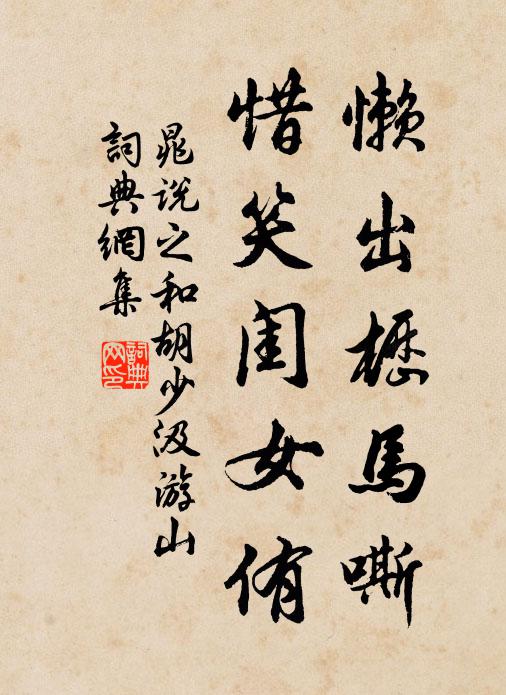 懒出櫪馬嘶
惜笑闺女侑
晁说之和胡少汲游山
詞典網集
詞典網印